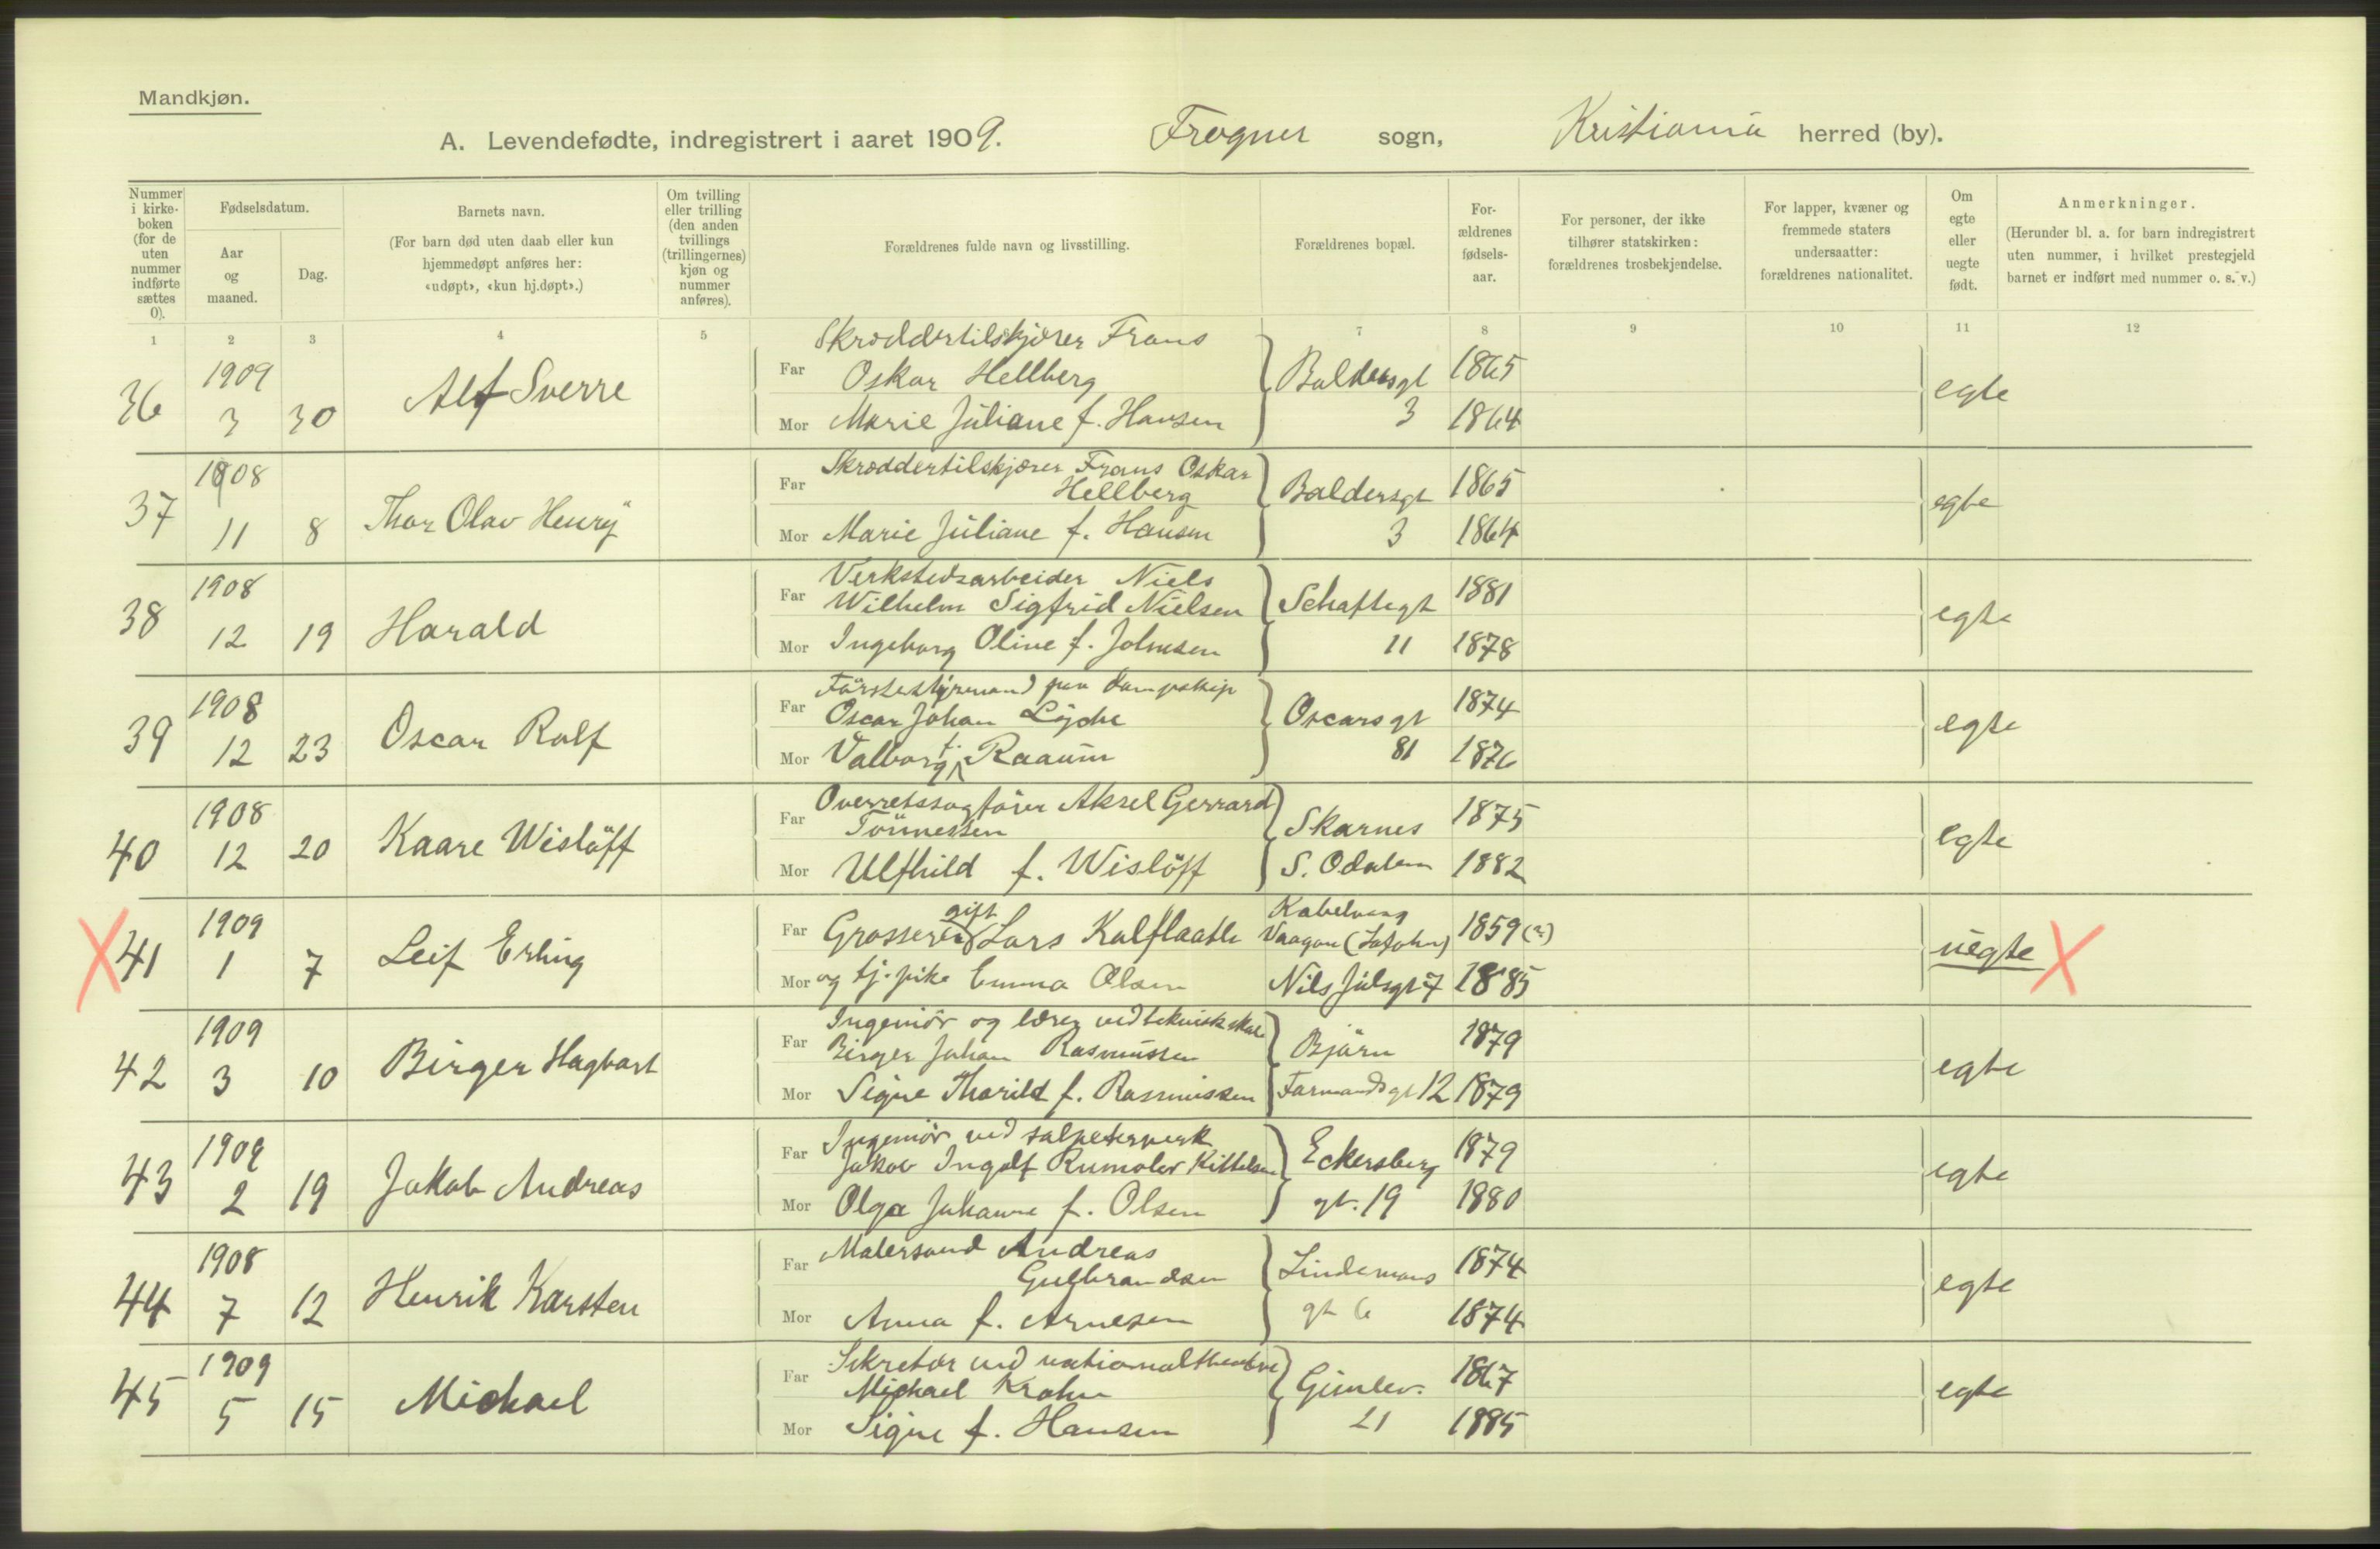 Mandkjøn.
A. Levendefødte, indregistrert i aaret 1909. Frogner sogn, Kristiania herred (by).
Nummer i kirke-boken (for de uten nummer indførte sættes 0).
Fødselsdatum.
Aar og maaned.
Dag.
Barnets navn.
(For barn død uten daab eller kun hjemmedøpt anføres her: «udøpt», «kun hj.døpt».)
Om tvilling eller trilling (den anden tvillings (trillingernes) kjøn og nummer anføres).
Forældrenes fulde navn og livsstilling.
Forældrenes bopæl.
For-ældrenes fødsels-aar.
For personer, der ikke tilhører statskirken: forældrenes trosbekjendelse.
For lapper, kvæner og fremmede staters undersaatter: forældrenes nationalitet.
Om egte eller uegte født.
Anmerkninger.
(Herunder bl. a. for barn indregistrert uten nummer, i hvilket prestegjeld barnet er indført med nummer o. s. v.)
1 2 3 4 5 7 8 9 10 11 12
36 1909 3 30 Alf Sverre
Far Skræddertilskjærer Frans
Oskar Hellberg Baldersgt 1865 egte
Mor Marie Juliane f. Hansen 3 1864
37 1908 11 8 Thor Olav Henry
Far Skræddertilskjærer Frans Oskar
Hellberg Baldersgt 1865 egte
Mor Marie Juliane f. Hansen 3 1864
38 1908 12 19 Harald
Far Verkstedsarbeider Niels
Wilhelm Sigfrid Nielsen Schaftegt 1881 egte
Mor Ingeborg Oline f. Johnsen 11 1878
39 1908 12 23 Oscar Rolf
Far Førstestyrmand paa dampskip
Oscar Johan Lyche Oscarsgt 1874 egte
Mor Valborg f. Raaum 81 1876
40 1908 12 20 Kaare Wisløff
Far Overretssagfører Aksel Gerrard
Tønnessen Skarnes 1875 egte
Mor Ulfhild f. Wisløff S. Odalen 1882
X 41 1909 1 7 Leif Erling
Far Grosserer gift Lars Kalflaatle Kabelvaag
Vaagan (Lofoten) 1859 (?) uegte X
Mor og tj. pike Emma Olsen Nils Juelsgt 7 1885
42 1909 3 10 Birger Hagbart
Far Ingeniør og lærer ved teknisk skole
Birger Johan Rasmussen Bjørn 1879 egte
Mor Signe Thorild f. Rasmussen Farmandsgt 12 1879
43 1909 2 19 Jakob Andreas
Far Ingeniør ved salpeterverk
Jakob Ingolf Rumoler Kittelsen Eckersberg 1879 egte
Mor Olga Johanne f. Olsen gt. 19 1880
44 1908 7 12 Henrik Karsten
Far Malersvend Andreas
Gulbrandsen Lindemans 1874 egte
Mor Anna f. Arnesen gt 6 1874
45 1909 5 15 Michael
Far Sekretær ved nationaltheatre
Michael Krohn Gimlev. 1867 egte
Mor Signe f. Hansen 21 1885